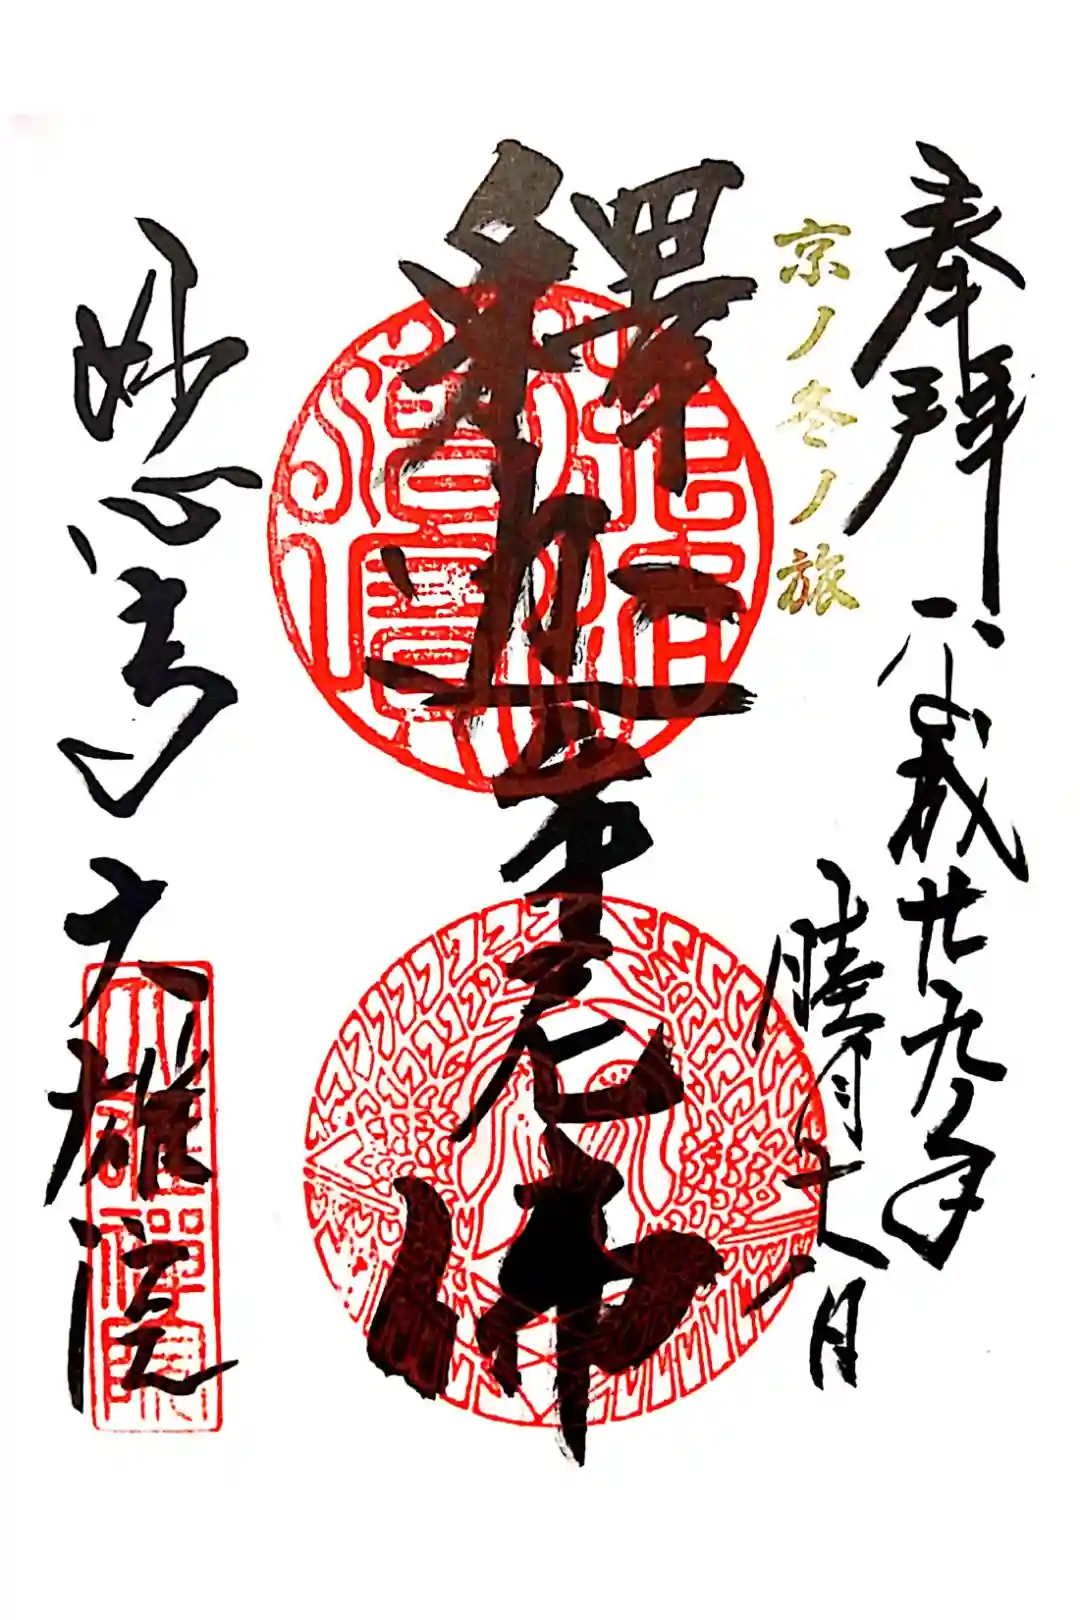 奉拝
平成廿九年
睦月
京ノ冬ノ旅
釋迦牟尼佛
妙心寺 大雄院